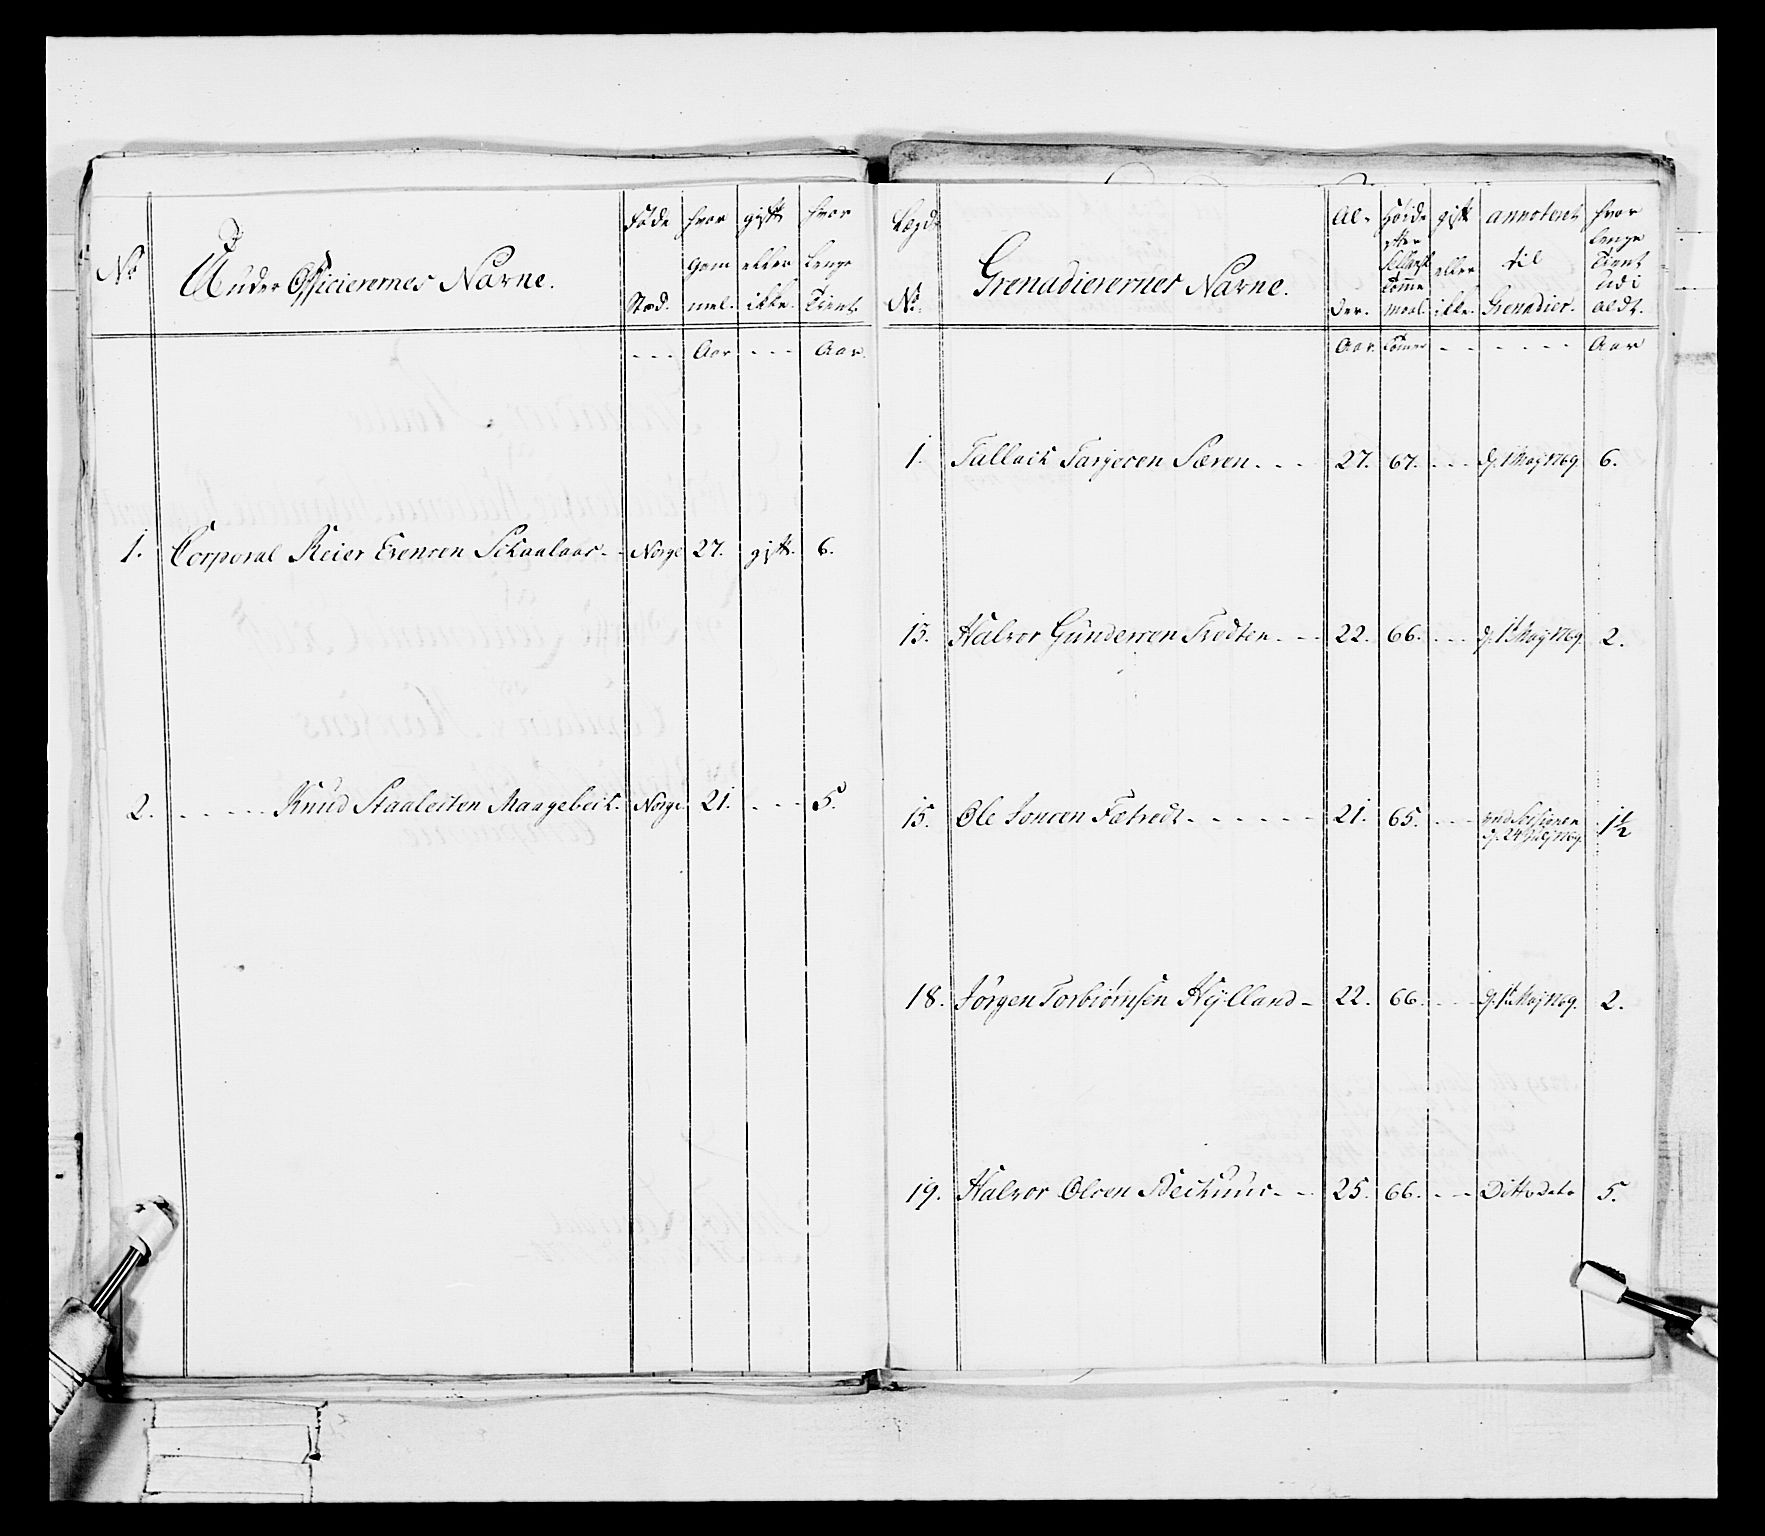 No
Under Officierernes Navne.
Føde Stæd.
hvor gam mel.
gift eller ikke.
hvor lenge tient.
- - - Aar - - - Aar.
1. Corporal Reier Evensen Schaalaas - - Norge 27. gift. 6.
2. - - - - - Knud Staalesen Maagebeck. Norge 21. - - - 5.
Lægds No.
Grenadierernes Navne.
Al- der.
Høide efter Tomme maal.
gift eller ikke.
annoteret til Grenadier.
hvor lenge tient udi aldt.
Aar. Tomer - - - - - - - Aar
1. Tallack Tarjesen - - - 27. 67. - - - d. 1 Maj 1769. 6.
13. Halvor Gundersen - - - 22. 66. - - - d. 1t Maj 1769. 2.
15. Ole Jonsen - - - - - - 21. 65. - - - und Sessionen
d. 24 1769. 1½
18. Jørgen Torbiørnsen Hylland - 22. 66. - - - d. 1t Maj 1769. 2.
19. Halvor Olsen - - 25. 66. - - - Ditto dato 5.